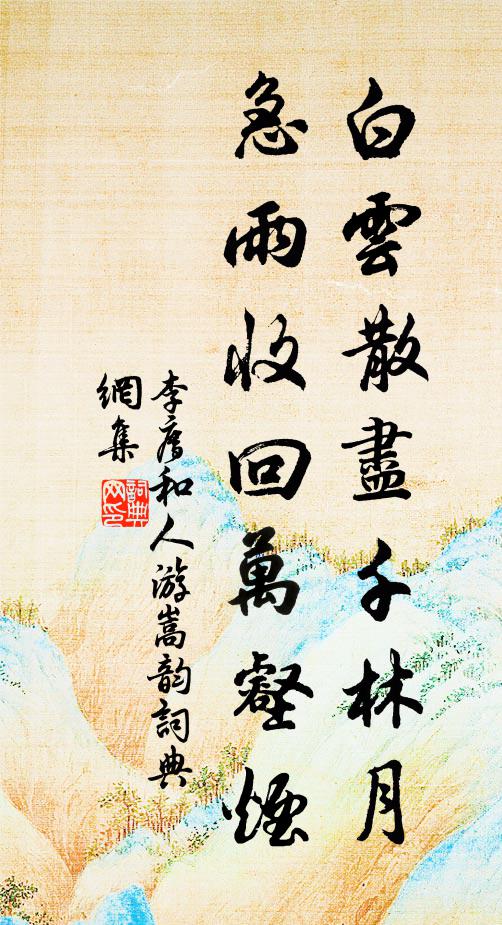 白雲散盡千林月
急雨收回萬壑煙
李廌和人游嵩韵詞典
網集
詞典
网印